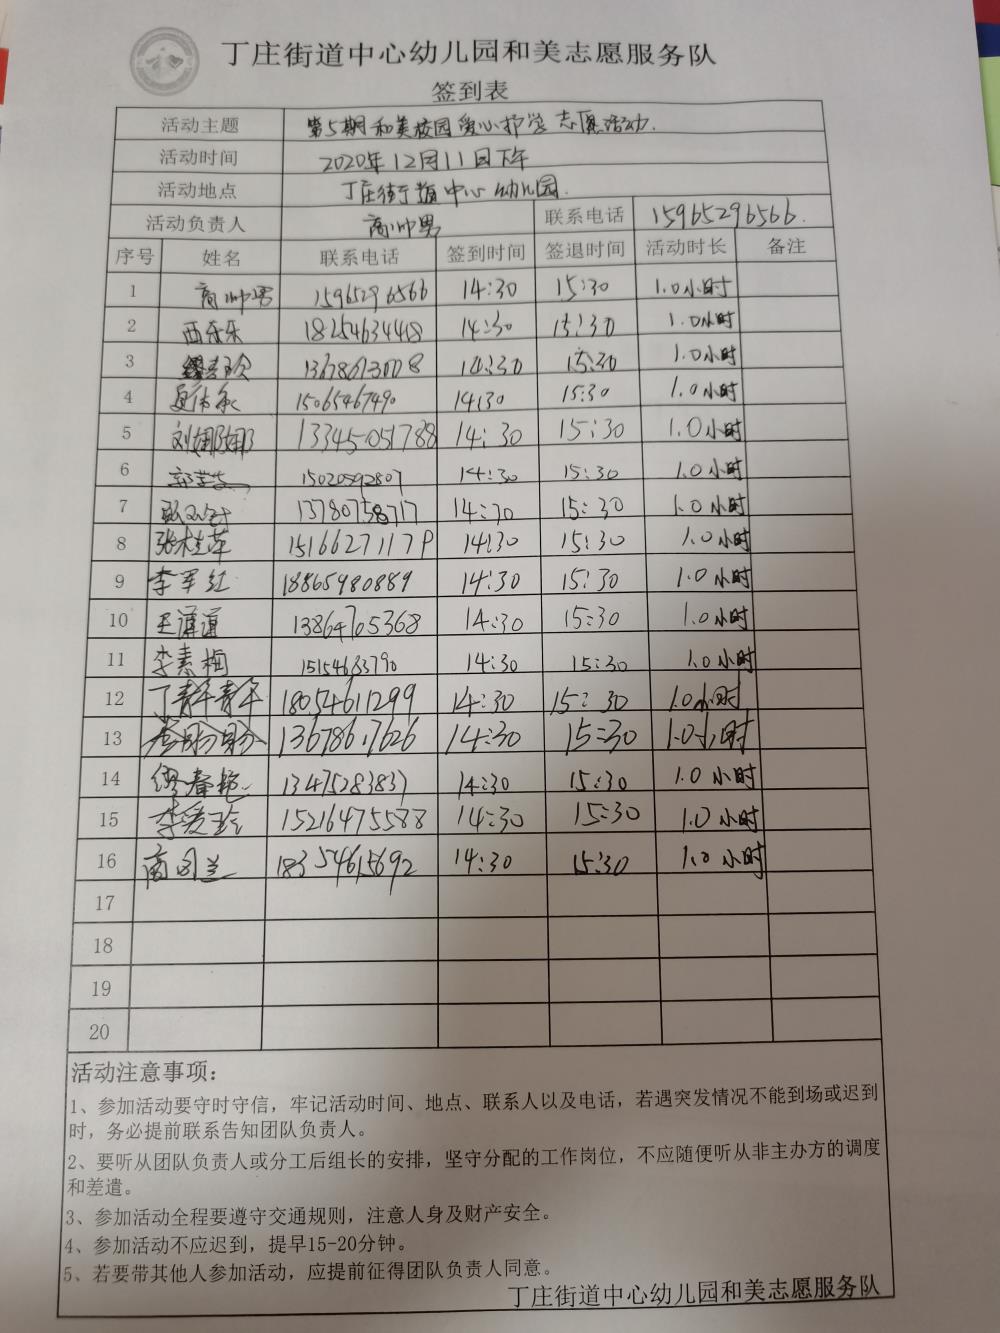 丁庄街道中心幼儿园和美志愿服务队
签到表
活动主题 第5期和美校园爱心护学志愿活动.
活动时间 2020年12月11日下午
活动地点 丁庄街道中心幼儿园.
活动负责人 商帅男 联系电话 15965296566.
序号 姓名 联系电话 签到时间 签退时间 活动时长 备注
1 商帅男 15965296566 14:30 15:30 1.0小时
2 西乐乐 18254634418 14:30 15:30 1.0小时
3 14:30 15:30 1.0小时
4 15065467490 14:30 15:30 1.0小时
5 刘娜娜 13345051788 14:30 15:30 1.0小时
6 15020592807 14:30 15:30 1.0小时
7 13780758717 14:30 15:30 1.0小时
8 张桂萍 15166271179 14:30 15:30 1.0小时
9 李军红 18865980889 14:30 15:30 1.0小时
10 王潇潇 13864705368 14:30 15:30 1.0小时
11 李素梅 15154683790 14:30 15:30 1.0小时
12 丁青年青年 18054611299 14:30 15:30 1.0小时
13 13678617626 14:30 15:30 1.0小时
14 缪春艳 13475283837 14:30 15:30 1.0小时
15 李爱玲 15216475588 14:30 15:30 1.0小时
16 商图兰 18354615692 14:30 15:30 1.0小时
17
18
19
20
活动注意事项：
1、参加活动要守时守信，牢记活动时间、地点、联系人以及电话，若遇突发情况不能到场或迟到
时，务必提前联系告知团队负责人。
2、要听从团队负责人或分工后组长的安排，坚守分配的工作岗位，不应随便听从非主办方的调度
和差遣。
3、参加活动全程要遵守交通规则，注意人身及财产安全。
4、参加活动不应迟到，提早15-20分钟。
5、若要带其他人参加活动，应提前征得团队负责人同意。
丁庄街道中心幼儿园和美志愿服务队